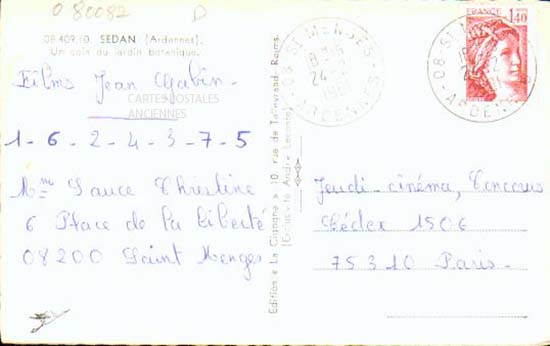 0 80082 D
08.409.10. SEDAN (Ardennes).
Un coin du jardin botanique.
Films Jean Gabin -
CARTES POSTALES
ANCIENNES
1 - 6 - 2 - 4 - 3 - 7 - 5
Mme Sauce Christine
6 Place de la Liberté
08200 Saint Menges
Edition « La Cigogne » 10, rue de Talleyrand, Reims.
(Exclusivité André Leconte)
08 ST MENGES
24-2
ARDENNES
FRANCE
1,40
08 ST MENGES
ARDENNES
Jeudi-cinéma, Concours
Cédex 1506
75310 Paris -